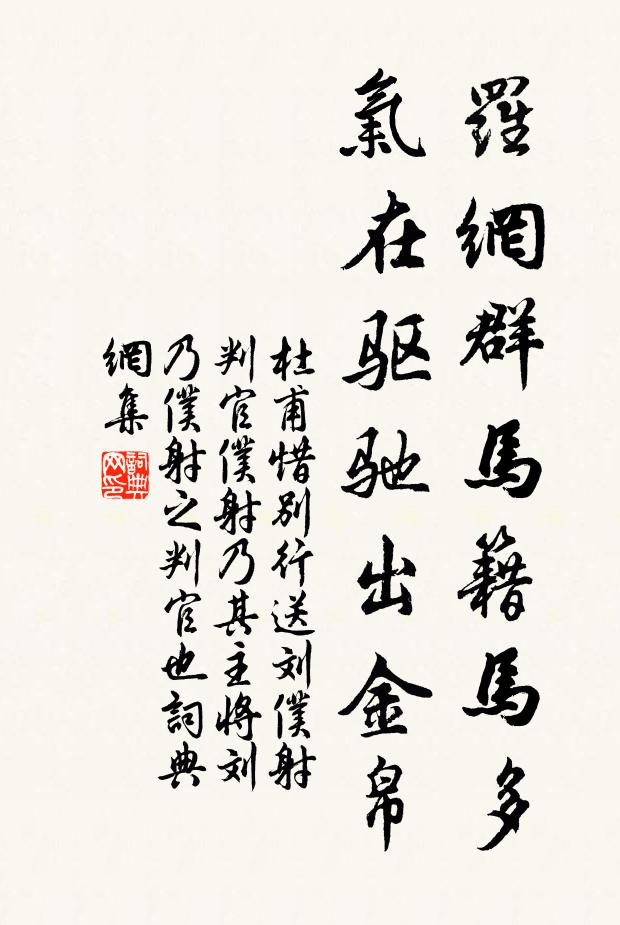 羅網群馬籍馬多
氣在驱驰出金帛
杜甫惜别行送刘僕射
判官僕射乃其主將刘
乃僕射之判官也詞典
網集
詞典
网印